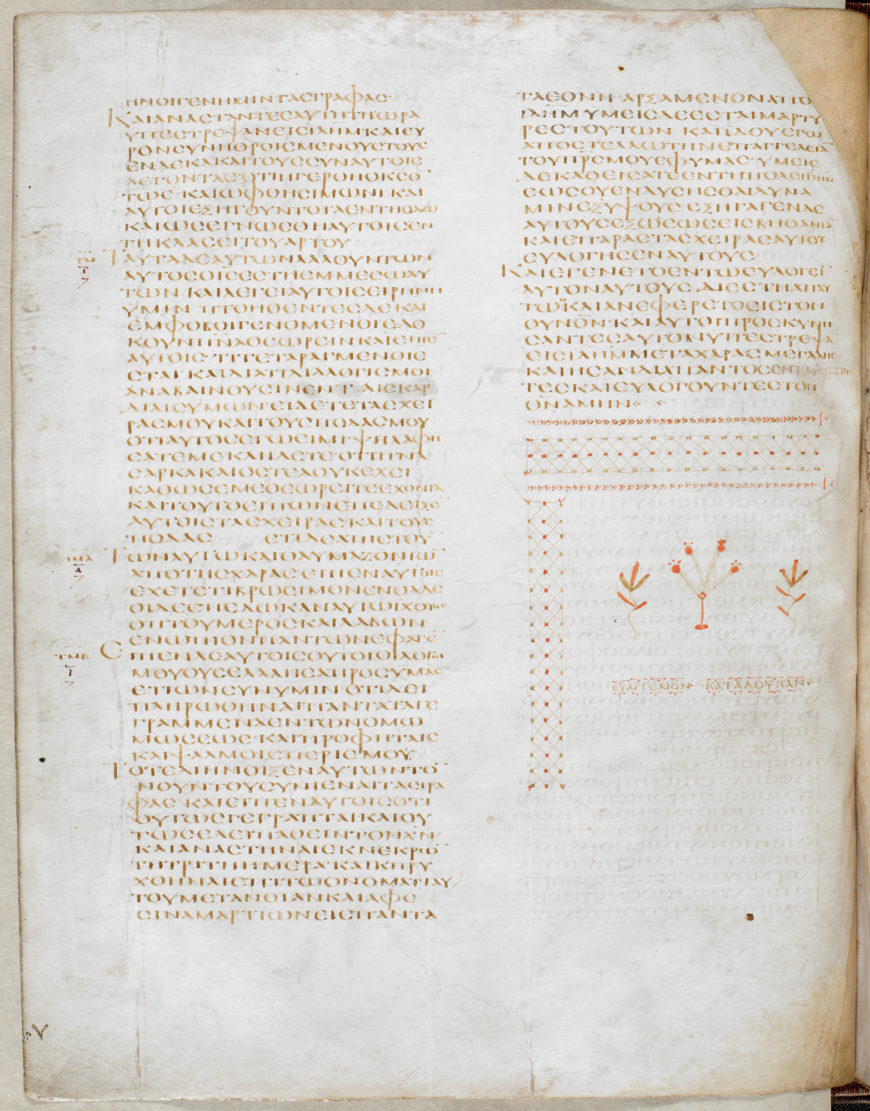 ΗΝΟΙΓΕΝΗΜΙΝΤΑϹΓΡΑΦΑϹ·
ΚΑΙΑΝΑϹΤΑΝΤΕϹΑΥΤΗΤΗΩΡΑ
ΥΠΕϹΤΡΕΨΑΝΕΙϹΙΛΗΜΚΑΙΕΥ
ΡΟΝϹΥΝΗΘΡΟΙϹΜΕΝΟΥϹΤΟΥϹ
ΕΝΔΕΚΑΚΑΙΤΟΥϹϹΥΝΑΥΤΟΙϹ
ΛΕΓΟΝΤΑϹΟΤΙΗΓΕΡΘΗΟΚϹΟ
ΤΩϹ·ΚΑΙΩΦΘΗϹΙΜΩΝΙΚΑΙ
ΑΥΤΟΙΕΞΗΓΟΥΝΤΟΤΑΕΝΤΗΟΔΩ
ΚΑΙΩϹΕΓΝΩϹΘΗΑΥΤΟΙϹΕΝ
ΤΗΚΛΑϹΕΙΤΟΥΑΡΤΟΥ
ΤΜ
ΤΑΥΤΑΔΕΑΥΤΩΝΛΑΛΟΥΝΤΩΝ
ΑΥΤΟϹΟΙϹΕϹΤΗΕΜΜΕϹΩΑΥ
ΤΩΝ ΚΑΙΛΕΓΕΙΑΥΤΟΙϹΕΙΡΗΝΗ
ΥΜΙΝ ΠΤΟΗΘΕΝΤΕϹΔΕΚΑΙ
ΕΜΦΟΒΟΙΓΕΝΟΜΕΝΟΙΕΔΟ
ΚΟΥΝΠΝΑΘΕΩΡΕΙΝΚΑΙΕΙΠΕ
ΑΥΤΟΙϹ·ΤΙΤΕΤΑΡΑΓΜΕΝΟΙΕ
ϹΤΑΙΚΑΙΔΙΑΤΙΔΙΑΛΟΓΙϹΜΟΙ
ΑΝΑΒΑΙΝΟΥϹΙΝΕΝΤΑΙϹΚΑΡ
ΔΙΑΙϹΥΜΩΝΕΙΔΕΤΕΤΑϹΧΕΙ
ΡΑϹΜΟΥΚΑΙΤΟΥϹΠΟΔΑϹΜΟΥ
ΟΤΙΑΥΤΟϹΕΓΩΕΙΜΙ·ΨΗΛΑΦΗ
ϹΑΤΕΜΕΚΑΙΙΔΕΤΕΟΤΙΠΝΑ
ϹΑΡΚΑΚΑΙΟϹΤΕΑΟΥΚΕΧΕΙ
ΚΑΘΩϹΕΜΕΘΕΩΡΕΙΤΕΕΧΟΝΤΑ
ΚΑΙΤΟΥΤΟΕΙΠΩΝΕΠΕΔΕΙΞΕ
ΑΥΤΟΙϹΤΑϹΧΕΙΡΑϹΚΑΙΤΟΥϹ
ΠΟΔΑϹ ΕΤΙΑΠΙϹΤΟΥ
ΤΜΑ
ΤΩΝΑΥΤΩΝΚΑΙΘΑΥΜΑΖΟΝΤΩ
ΑΠΟΤΗϹΧΑΡΑϹΕΙΠΕΝΑΥΤΟΙϹ
ΕΧΕΤΕΤΙΒΡΩϹΙΜΟΝΕΝΘΑΔΕ
ΟΙΔΕΕΠΕΔΩΚΑΝΑΥΤΩΙΧΘΥΟϹ
ΟΠΤΟΥΜΕΡΟϹΚΑΙΛΑΒΩΝ
ΕΝΩΠΙΟΝΠΑΝΤΩΝΕΦΑΓΕ
ΤΜΒ
ΕΙΠΕΝΔΕΑΥΤΟΙϹΟΥΤΟΙΟΙΛΟΓΟΙ
ΜΟΥΟΥϹΕΛΑΛΗϹΑΠΡΟϹΥΜΑϹ
ΕΤΙΩΝϹΥΝΥΜΙΝΟΤΙΔΕΙ
ΠΛΗΡΩΘΗΝΑΙΠΑΝΤΑΤΑΓΕ
ΓΡΑΜΜΕΝΑΕΝΤΩΝΟΜΩ
ΜΩϹΕΩϹΚΑΙΠΡΟΦΗΤΑΙϹ
ΚΑΙΨΑΛΜΟΙϹΠΕΡΙΕΜΟΥ
ΤΟΤΕΔΙΗΝΟΙΞΕΝΑΥΤΩΝΤΟ
ΝΟΥΝΤΟΥϹΥΝΙΕΝΑΙΤΑϹΓΡΑ
ΦΑϹ ΚΑΙΕΙΠΕΝΑΥΤΟΙϹΟΤΙ
ΟΥΤΩϹΓΕΓΡΑΠΤΑΙΚΑΙΟΥ
ΤΩϹΕΔΕΙΠΑΘΕΙΝΤΟΝΧΝ
ΚΑΙΑΝΑϹΤΗΝΑΙΕΚΝΕΚΡΩ
ΤΗΤΡΙΤΗΗΜΕΡΑΚΑΙΚΗΡΥ
ΧΘΗΝΑΙΕΠΙΤΩΟΝΟΜΑΤΙΑΥ
ΤΟΥΜΕΤΑΝΟΙΑΝΚΑΙΑΦΕ
ϹΙΝΑΜΑΡΤΙΩΝΕΙϹΠΑΝΤΑ
ΤΑΕΘΝΗ·ΑΡΞΑΜΕΝΟΝΑΠΟ
ΙΛΗΜΥΜΕΙϹΔΕΕϹΤΑΙΜΑΡΤΥ
ΡΕϹΤΟΥΤΩΝ ΚΑΙΙΔΟΥΕΓΩ
ΑΠΟϹΤΕΛΛΩΤΗΝΕΠΑΓΓΕΛΕΙΑ
ΤΟΥΠΡϹΜΟΥΕΦΥΜΑϹ·ΥΜΕΙϹ
ΔΕΚΑΘΕΙϹΑΤΕΕΝΤΗΠΟΛΕΙΙΛΗΜ
ΕΩϹΟΥΕΝΔΥϹΗϹΘΑΙΔΥΝΑ
ΜΙΝΕΞΥΨΟΥϹΕΞΗΓΑΓΕΝΔΕ
ΑΥΤΟΥϹΕΞΩΕΩϹΕΙϹΒΗΘΑΝΙΑ
ΚΑΙΕΠΑΡΑϹΤΑϹΧΕΙΡΑϹΑΥΤΟΥ
ΕΥΛΟΓΗϹΕΝΑΥΤΟΥϹ
ΚΑΙΕΓΕΝΕΤΟΕΝΤΩΕΥΛΟΓΕΙ
ΑΥΤΟΝΑΥΤΟΥϹ ΔΙΕϹΤΗΑΠΑΥ
ΤΩΚΑΙΑΝΕΦΕΡΕΤΟΕΙϹΤΟΝ
ΟΥΝΟΝ·ΚΑΙΑΥΤΟΙΠΡΟϹΚΥΝΗ
ϹΑΝΤΕϹΑΥΤΟΝΥΠΕϹΤΡΕΨΑ
ΕΙϹΙΛΗΜΜΕΤΑΧΑΡΑϹΜΕΓΑΛΗϹ
ΚΑΙΗϹΑΝΔΙΑΠΑΝΤΟϹΕΝΤΩΙΕΡΩ
ΤΕϹΚΑΙΕΥΛΟΓΟΥΝΤΕϹΤΟΝ
ΘΝΑΜΗΝ
ΕΥΑΓΓΕΛΙΟΝ ΚΑΤΑΛΟΥΚΑΝ